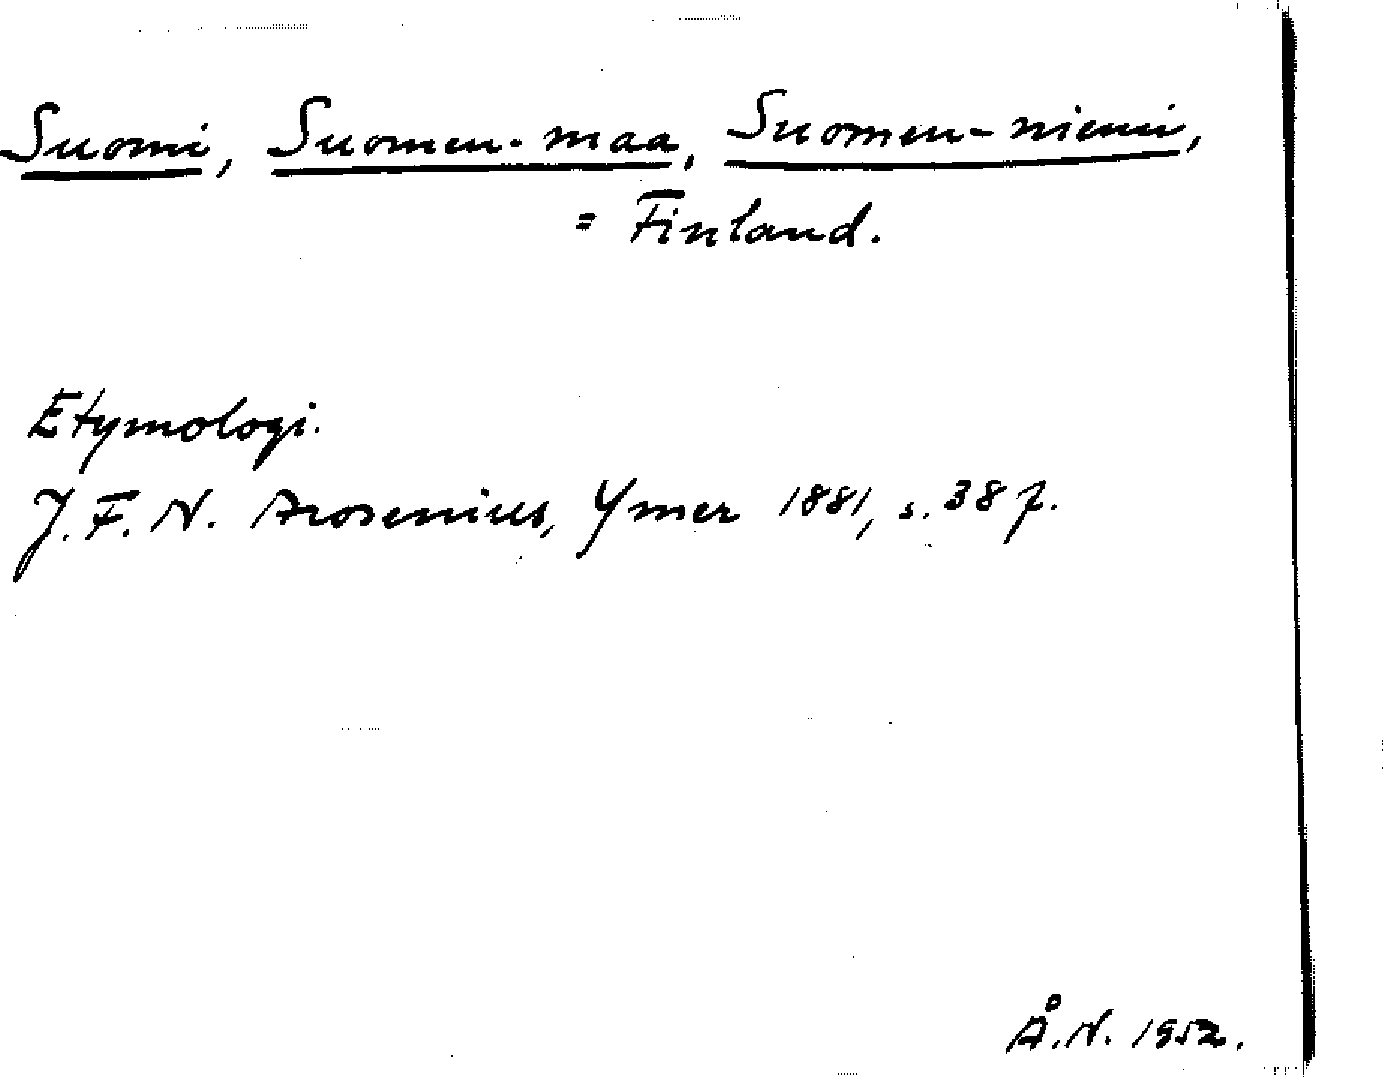 Suomi, Suomen-maa, Suomen-niemi,
= Finland.
Etymologi.
J. F. N. Arosenius, Ymer 1881, s. 38 f.
Å. N. 1952.